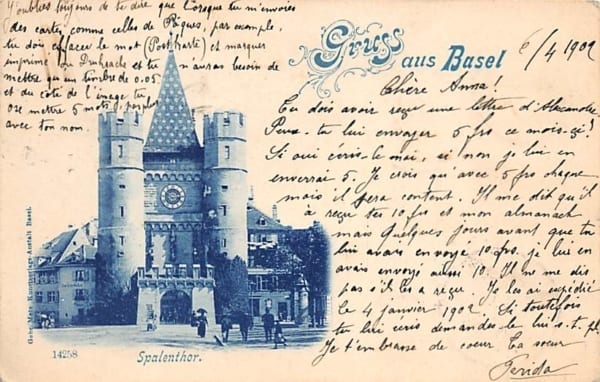 J'oublies toujours de te dire, que lorsque tu m'envoies
des cartes comme celles de Pâques, par exemple,
tu dois effacer le mot (Postkarte) et marquer
imprimé ou Druksache et tu n'auras besoin de
mettre qu'un timbre de 0.05
et du côté de l'image tu
ose mettre 5 mots p. plus
avec ton nom.
Gruss aus Basel
6/4 1902
Chère Anna!
Tu dois avoir reçu une lettre d'Alexandre
Peux-tu lui envoyer 5 frs ce mois-çi?
Si oui écris-le moi, si non je lui en
enverrai 5. Je crois qu'avec 5 frs chaque
mois il sera content. Il me dit qu'il
à reçu tes 10 frs et mon almanach
mais quelques jours avant que tu
lui avais envoyé 10 frs. je lui en
avais envoyé aussi 10. Il ne me dis
pas s'il les a reçu. Je les ai expédié
le 4 janvier 1902. Si toutefois
tu lui écris demandes le lui s. t. pl.
Je t'embrasse de coeur ta soeur
Ferida
14258
Spalenthor.